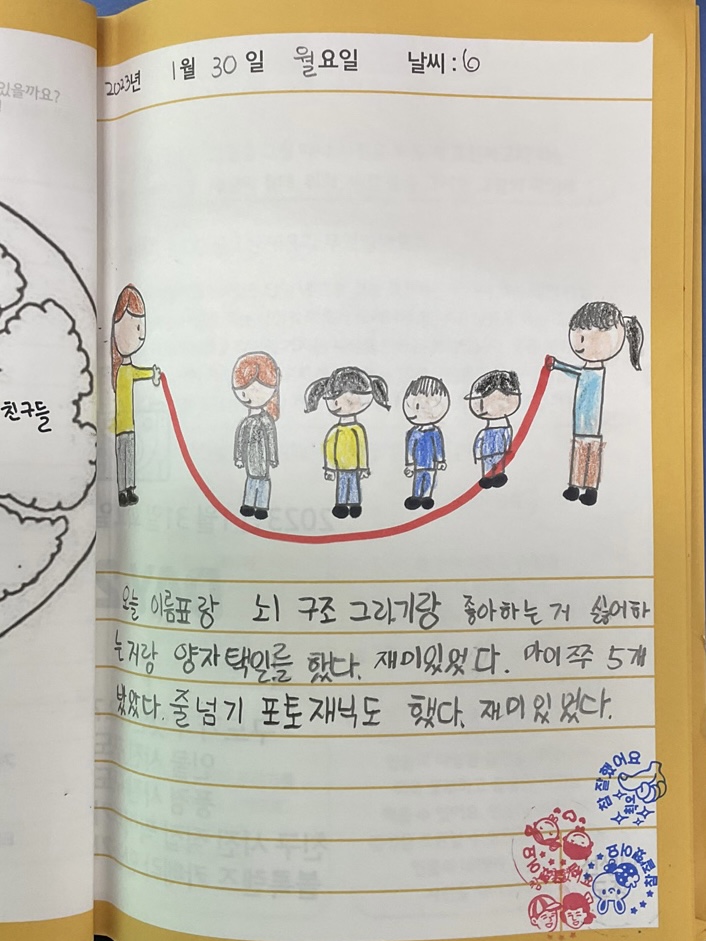 있을까요?
친구들
2023년 1월 30일 월요일 날씨:
오늘 이름표랑 뇌 구조 그리기랑 좋아하는 거 싫어하
는거랑 양자택일를 했다. 재미있었다. 마이쭈 5개
봤았다. 줄넘기 포토재닉도 했다. 재미있었다.
참 잘했어요
최고